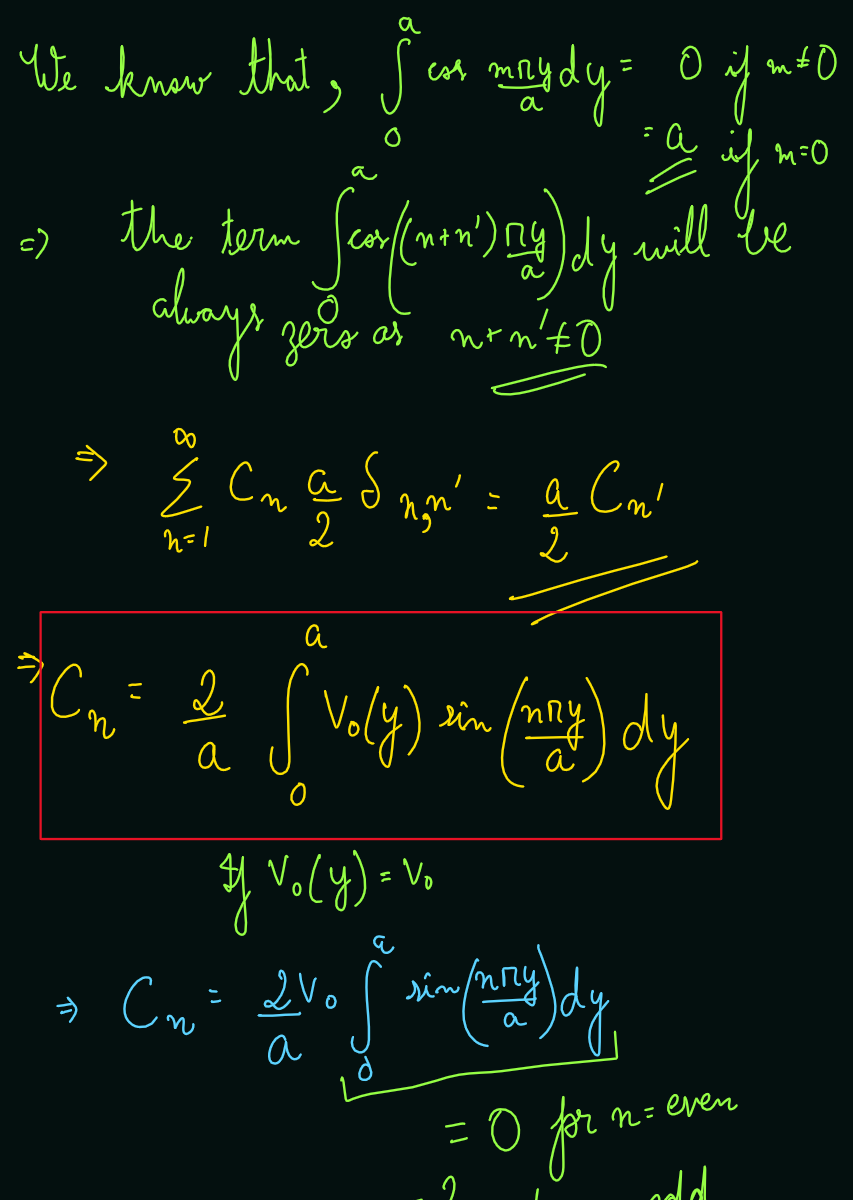 We know that, ∫₀ᵃ cos mπy/a dy = 0 if m≠0
= a if m=0
⇒ the term ∫₀ᵃ cos((n+n')πy/a) dy will be
always zero as n+n'≠0
⇒ ∑ₙ₌₁^∞ Cₙ a/2 δₙ,ₙ' = a/2 Cₙ'
⇒ Cₙ = 2/a ∫₀ᵃ V₀(y) sin(nπy/a) dy
If V₀(y) = V₀
⇒ Cₙ = 2V₀/a ∫₀ᵃ sin(nπy/a) dy
= 0 for n=even